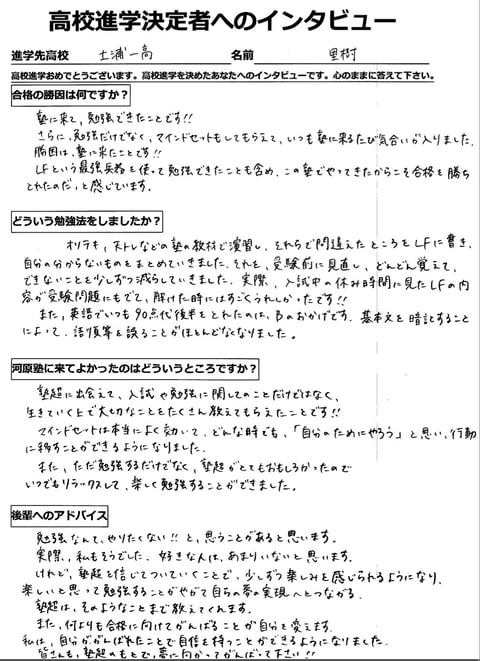 高校進学決定者へのインタビュー
進学先高校 土浦一高 名前 里樹
高校進学おめでとうございます。高校進学を決めたあなたへのインタビューです。心のままに答えて下さい。
合格の勝因は何ですか？
塾に来て、勉強できたことです!!
さらに、勉強だけでなく、マインドセットもしてもらえて、いつも塾に来るたび気合いが入りました。
勝因は、塾に来たことです!!
LFという最強兵器を使って勉強できたことも含め、この塾でやってきたからこそ合格を勝ち
とれたのだ、と感じています。
どういう勉強法をしましたか？
オリテキ、ストレなどの塾の教材で演習し、それらで間違えたところをLFに書き、
自分の分からないものをまとめていきました。それを、受験前に見直し、どんどん覚えて、
できないことを少しずつ減らしていきました。実際、入試中の休み時間に見たLFの内
容が受験問題にもでて、解けた時にはすごくうれしかったです!!
また、英語でいつも90点代後半をとれたのは、βのおかげです。基本文を暗記すること
によって、語順等を誤ることがほとんどなくなりました。
河原塾に来てよかったのはどういうところですか？
塾超に出会えて、入試や勉強に関してのことだけではなく、
生きていく上で大切なことをたくさん教えてもらえたことです!!
マインドセットは本当によく効いて、どんな時でも、「自分のためにやろう」と思い、行動
に移すことができるようになりました。
また、ただ勉強するだけでなく、塾超がとてもおもしろかったので
いつでもリラックスして、楽しく勉強することができました。
後輩へのアドバイス
勉強なんて、やりたくない!!と、思うことがあると思います。
実際、私もそうでした。好きな人は、あまりいないと思います。
けれど、塾超を信じてついていくことで、少しずつ楽しみを感じられるようになり、
楽しいと思って勉強することがやがて自らの夢の実現へとつながる。
塾超は、そのようなことまで教えてくれます。
また、何よりも合格に向けてがんばることが自分を変えます。
私は、自分ががんばれたことで自信を持つことができるようになりました。
皆さんも、塾超のもとで、夢に向かってがんばって下さい!!